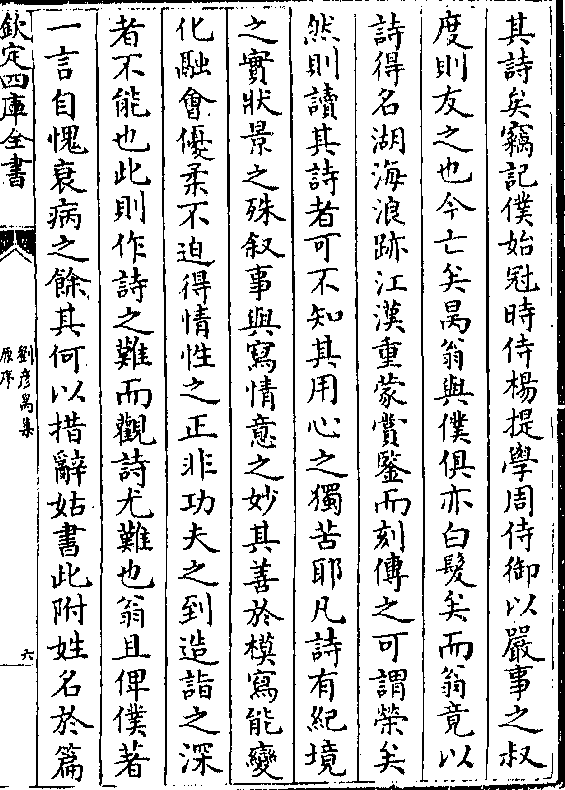 其詩矣竊記僕始冠時侍楊提學周侍御以嚴事之叔
度則友之也今亡矣昺翁與僕俱亦白髮矣而翁竟以
詩得名湖海浪跡江漢重蒙賞鑒而刻傳之可謂榮矣
然則讀其詩者可不知其用心之獨苦耶凡詩有紀境
之實狀景之殊叙事與寫情意之妙其善於模寫能變
化融會優柔不迫得情性之正非功夫之到造詣之深
者不能也此則作詩之難而觀詩尤難也翁且俾僕著
一言自愧衰病之餘其何以措辭姑書此附姓名於篇
欽定四庫全書
劉彦昺集
原序
六